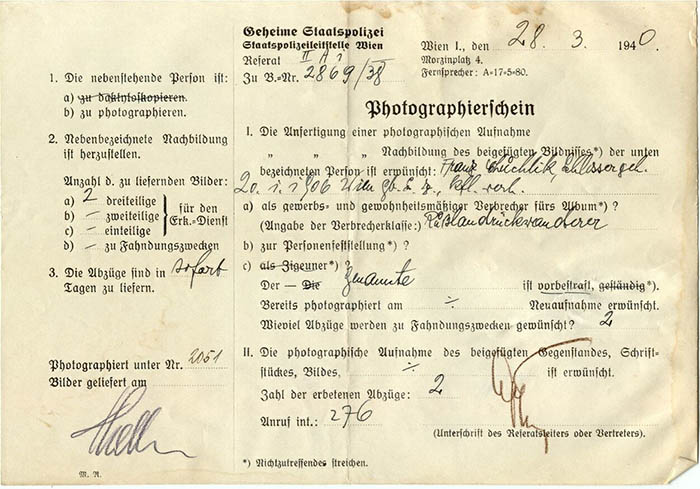 Geheime Staatspolizei
Staatspolizeileitstelle Wien
Referat II A 1
Zu B.-Nr. 2869/38
Wien I., den 28. 3. 1940.
Morzinplatz 4.
Fernsprecher: A=17=5=80.
1. Die nebenstehende Person ist:
a) zu daktyloskopieren.
b) zu photographieren.
2. Nebenbezeichnete Nachbildung
ist herzustellen.
Anzahl d. zu liefernden Bilder:
a) 2 dreiteilige
b) – zweiteilige
c) – einteilige
für den
Erk.-Dienst
d) – zu Fahndungszwecken
3. Die Abzüge sind in sofort
Tagen zu liefern.
Photographiert unter Nr. 2051
Bilder geliefert am
M. R.
Photographierschein
I. Die Anfertigung einer photographischen Aufnahme
„ „ „ Nachbildung des beigefügten Bildnisses*) der unten
bezeichneten Person ist erwünscht: Franz
20. 1. 1906 Wien
a) als gewerbs- und gewohnheitsmäßiger Verbrecher fürs Album*) ?
(Angabe der Verbrecherklasse:) Rußlandrückwanderer
b) zur Personenfeststellung*) ?
c) als Zigeuner*) ?
Der — Die Genannte ist vorbestraft, geständig*).
Bereits photographiert am ÷ Neuaufnahme erwünscht.
Wieviel Abzüge werden zu Fahndungszwecken gewünscht? 2
II. Die photographische Aufnahme des beigefügten Gegenstandes, Schrift-
stückes, Bildes, ÷ ist erwünscht.
Zahl der erbetenen Abzüge: 2
Anruf int.: 276
(Unterschrift des Referatsleiters oder Vertreters).
*) Nichtzutreffendes streichen.